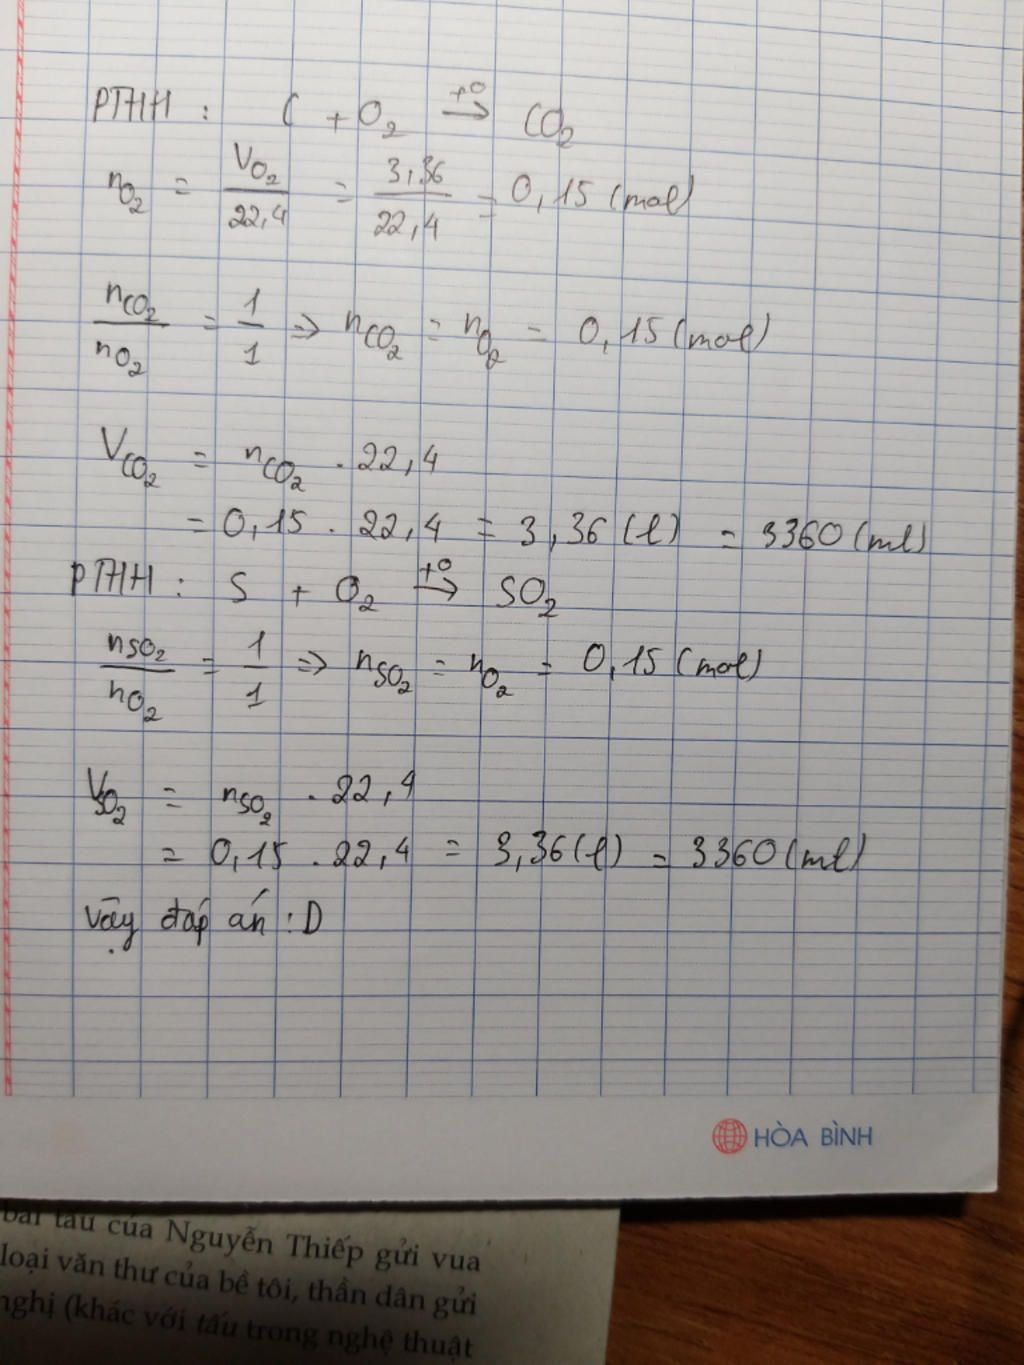 PTHH : C + O₂ →t° CO₂
nO₂ = VO₂/22,4 = 3,36/22,4 = 0,15 (mol)
nCO₂/nO₂ = 1/1 => nCO₂ = nO₂ = 0,15 (mol)
VCO₂ = nCO₂ . 22,4
= 0,15 . 22,4 = 3,36 (l) = 3360 (ml)
PTHH : S + O₂ →t° SO₂
nSO₂/nO₂ = 1/1 => nSO₂ = nO₂ = 0,15 (mol)
VSO₂ = nSO₂ . 22,4
= 0,15 . 22,4 = 3,36 (l) = 3360 (ml)
Vậy đáp án : D
HÒA BÌNH
bài tấu của Nguyễn Thiếp gửi vua
loại văn thư của bề tôi, thần dân gửi
nghị (khác với tấu trong nghệ thuật